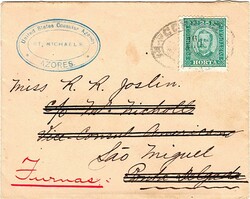 United States Consular Agency
ST. MICHAEL'S
AZORES
HORTA
Miss R. R. Joslin.
c/o Mr Nicholls
Vice Consul Americano
São Miguel
Ponta Delgada
Furnas.